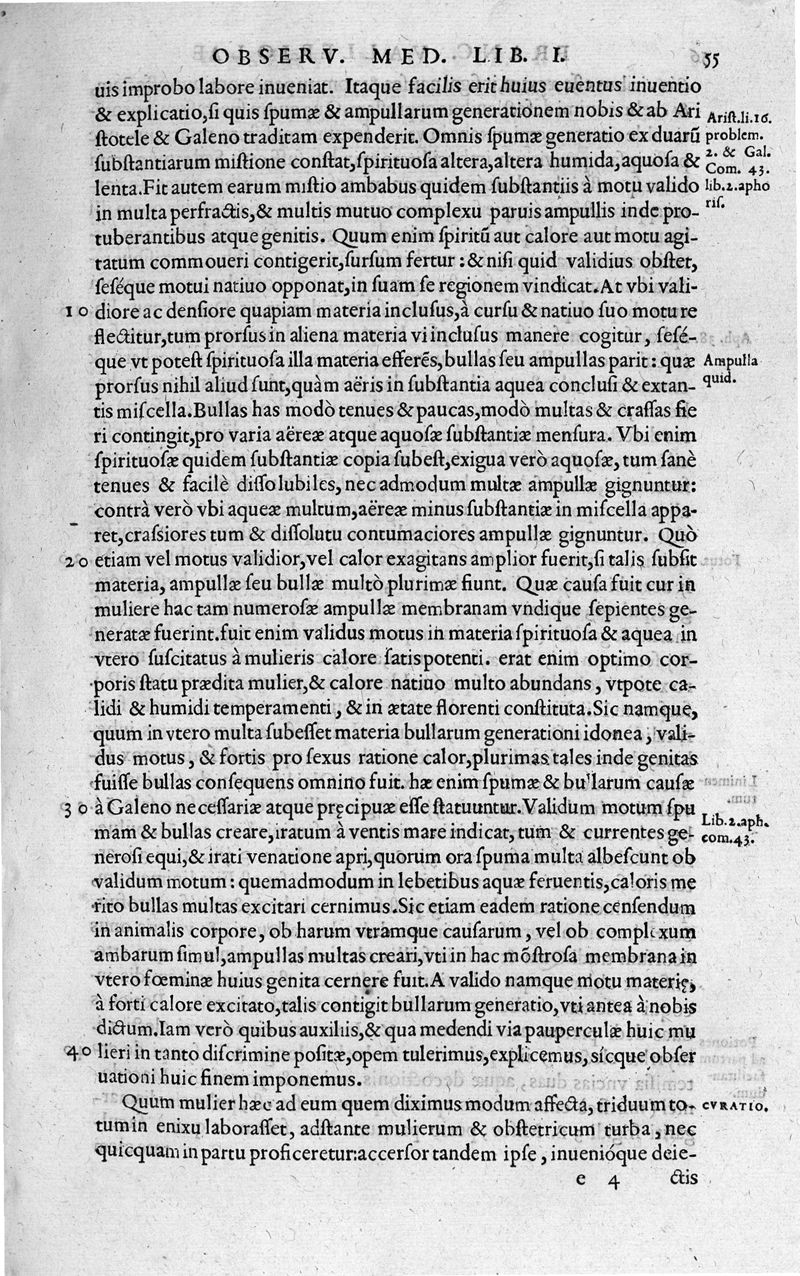 OBSERV. MED. LIB. I. 55
uis improbo labore inueniat. Itaque facilis erit huius euentus inuentio
& explicatio, ſi quis ſpumæ & ampullarum generationem nobis & ab Ari
Ariſt. li. 16.
ſtotele & Galeno traditam expenderit. Omnis ſpumæ generatio ex duarū
problem.
ſubſtantiarum miſtione conſtat, ſpirituoſa altera, altera humida, aquoſa &
2. & Gal.
Com. 43.
lenta. Fit autem earum miſtio ambabus quidem ſubſtantiis à motu valido
lib. 2. apho
in multa perfractis, & multis mutuo complexu paruis ampullis inde pro-
riſ.
tuberantibus atque genitis. Quum enim ſpiritū aut calore aut motu agi-
tatum commoueri contigerit, ſurſum fertur: & niſi quid validius obſtet,
ſeſéque motui natiuo opponat, in ſuam ſe regionem vindicat. At vbi vali-
10 diore ac denſiore quapiam materia incluſus, à curſu & natiuo ſuo motu re
flectitur, tum prorſus in aliena materia vi incluſus manere cogitur, ſeſé-
que vt poteſt ſpirituoſa illa materia efferēs, bullas ſeu ampullas parit: quæ
Ampulla
prorſus nihil aliud ſunt, quàm aëris in ſubſtantia aquea concluſi & extan-
quid.
tis miſcella. Bullas has modò tenues & paucas, modò multas & craſſas fie
ri contingit, pro varia aëreæ atque aquoſæ ſubſtantiæ menſura. Vbi enim
ſpirituoſæ quidem ſubſtantiæ copia ſubeſt, exigua verò aquoſæ, tum ſanè
tenues & facilè diſſolubiles, nec admodum multæ ampullæ gignuntur:
contrà verò vbi aqueæ multum, aëreæ minus ſubſtantiæ in miſcella appa-
ret, craſsiores tum & diſſolutu contumaciores ampullæ gignuntur. Quò
20 etiam vel motus validior, vel calor exagitans amplior fuerit, ſi talis ſubſit
materia, ampullæ ſeu bullæ multò plurimæ fiunt. Quæ cauſa fuit cur in
muliere hac tam numeroſæ ampullæ membranam vndique ſepientes ge-
neratæ fuerint. fuit enim validus motus in materia ſpirituoſa & aquea in
vtero ſuſcitatus à mulieris calore ſatis potenti. erat enim optimo cor-
poris ſtatu prædita mulier, & calore natiuo multo abundans, vtpote ca-
lidi & humidi temperamenti, & in ætate florenti conſtituta. Sic namque,
quum in vtero multa ſubeſſet materia bullarum generationi idonea, vali-
dus motus, & fortis pro ſexus ratione calor, plurimas tales inde genitas
fuiſſe bullas conſequens omnino fuit. hæ enim ſpumæ & bullarum cauſæ
30 à Galeno neceſſariæ atque pręcipuæ eſſe ſtatuuntur. Validum motum ſpu
Lib. 2. aph.
mam & bullas creare, iratum à ventis mare indicat, tum & currentes ge-
com. 43.
neroſi equi, & irati venatione apri, quorum ora ſpuma multa albeſcunt ob
validum motum: quemadmodum in lebetibus aquæ feruentis, caloris me
rito bullas multas excitari cernimus. Sic etiam eadem ratione cenſendum
in animalis corpore, ob harum vtramque cauſarum, vel ob complexum
ambarum ſimul, ampullas multas creari, vti in hac mōſtroſa membrana in
vtero fœminæ huius genita cernere fuit. A valido namque motu materię,
à forti calore excitato, talis contigit bullarum generatio, vti antea à nobis
dictum. Iam verò quibus auxiliis, & qua medendi via pauperculæ huic mu
40 lieri in tanto diſcrimine poſitæ, opem tulerimus, explicemus, ſicque obſer
uationi huic finem imponemus.
Quum mulier hæc ad eum quem diximus modum affecta, triduum to-
CVRATIO.
tum in enixu laboraſſet, adſtante mulierum & obſtetricum turba, nec
quicquam in partu proficeretur: accerſor tandem ipſe, inuenióque deie-
e 4 ctis